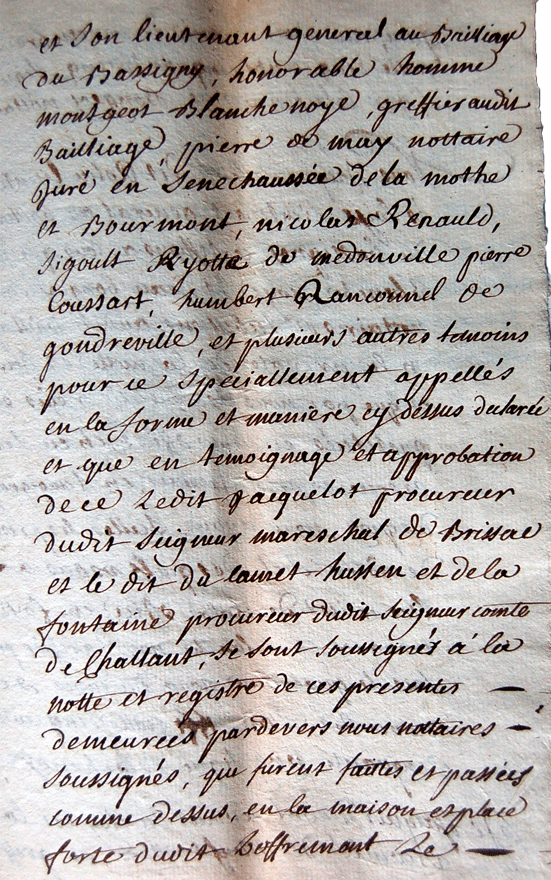 et son lieutenant general au Bailliage
du Bassigny, honorable homme
montgeot Blanchenoye, greffier audit
Bailliage, pierre de may nottaire
juré en Senechaussée de la mothe
et Bourmont, nicolas Renauld,
Sigoult Ryotte de medonville pierre
Coussart, humbert Ranconnel de
gondreville, et plusieurs autres temoins
pour ce speciallement appellés
en la forme et maniere cy dessus declarée
et que en temoignage et approbation
de ce Ledit Jacquelot procureur
dudit Seigneur mareschal de Brissac
et le dit du hussen et de la
fontaine procureur dudit seigneur comte
de Challant, se sont soussignés à la
notte et registre de ces presentes —
demeurées pardevers nous nottaires —
soussignés, que furent faittes et passées
comme dessus, en la maison et place
forte dudit Beffremont Le —